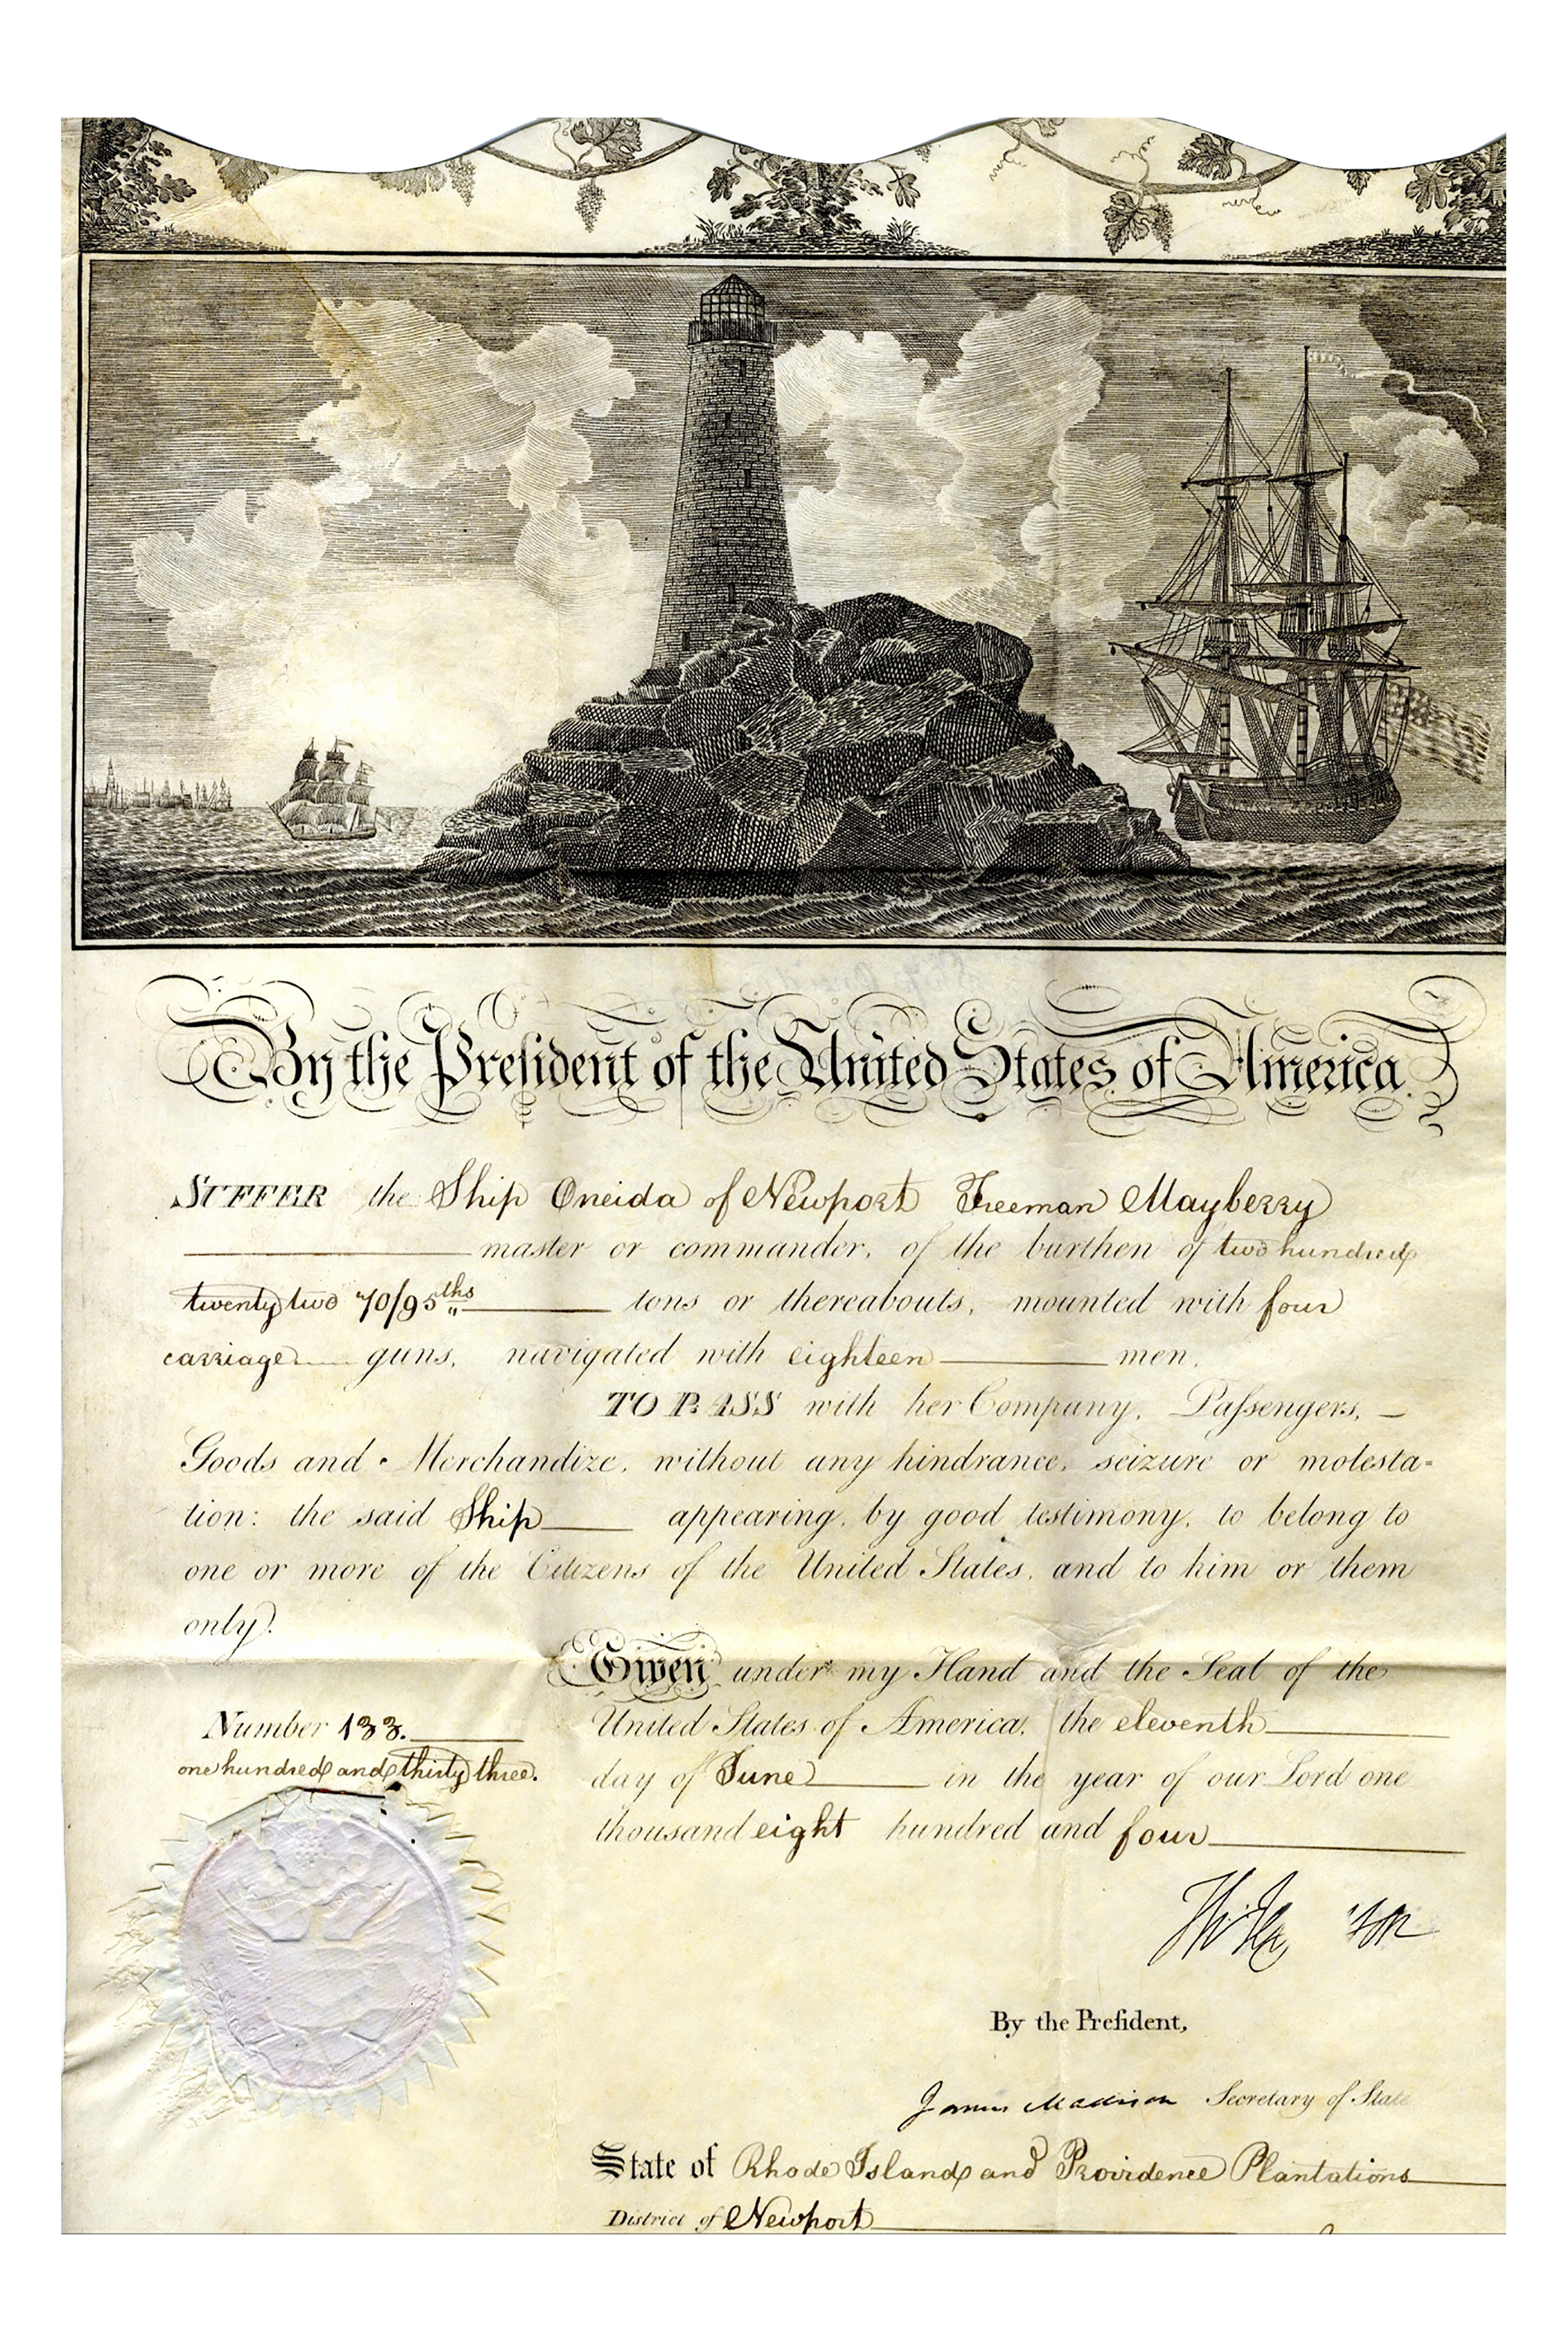 By the President of the United States of America
SUFFER the Ship Oneida of Newport Freeman Mayberry
master or commander, of the burthen of two hundred
twenty two 70/95ths tons or thereabouts, mounted with four
carriage guns, navigated with eighteen men,
TO PASS with her Company, Passengers,
Goods and Merchandize, without any hindrance, seizure or molesta=
tion: the said Ship appearing, by good testimony, to belong to
one or more of the Citizens of the United States, and to him or them
only.
Given under my Hand and the Seal of the
United States of America, the eleventh
day of June in the year of our Lord one
thousand eight hundred and four
Number 133.
one hundred and thirty three.
By the President,
James Madison Secretary of State
State of Rhode Island and Providence Plantations
District of Newport